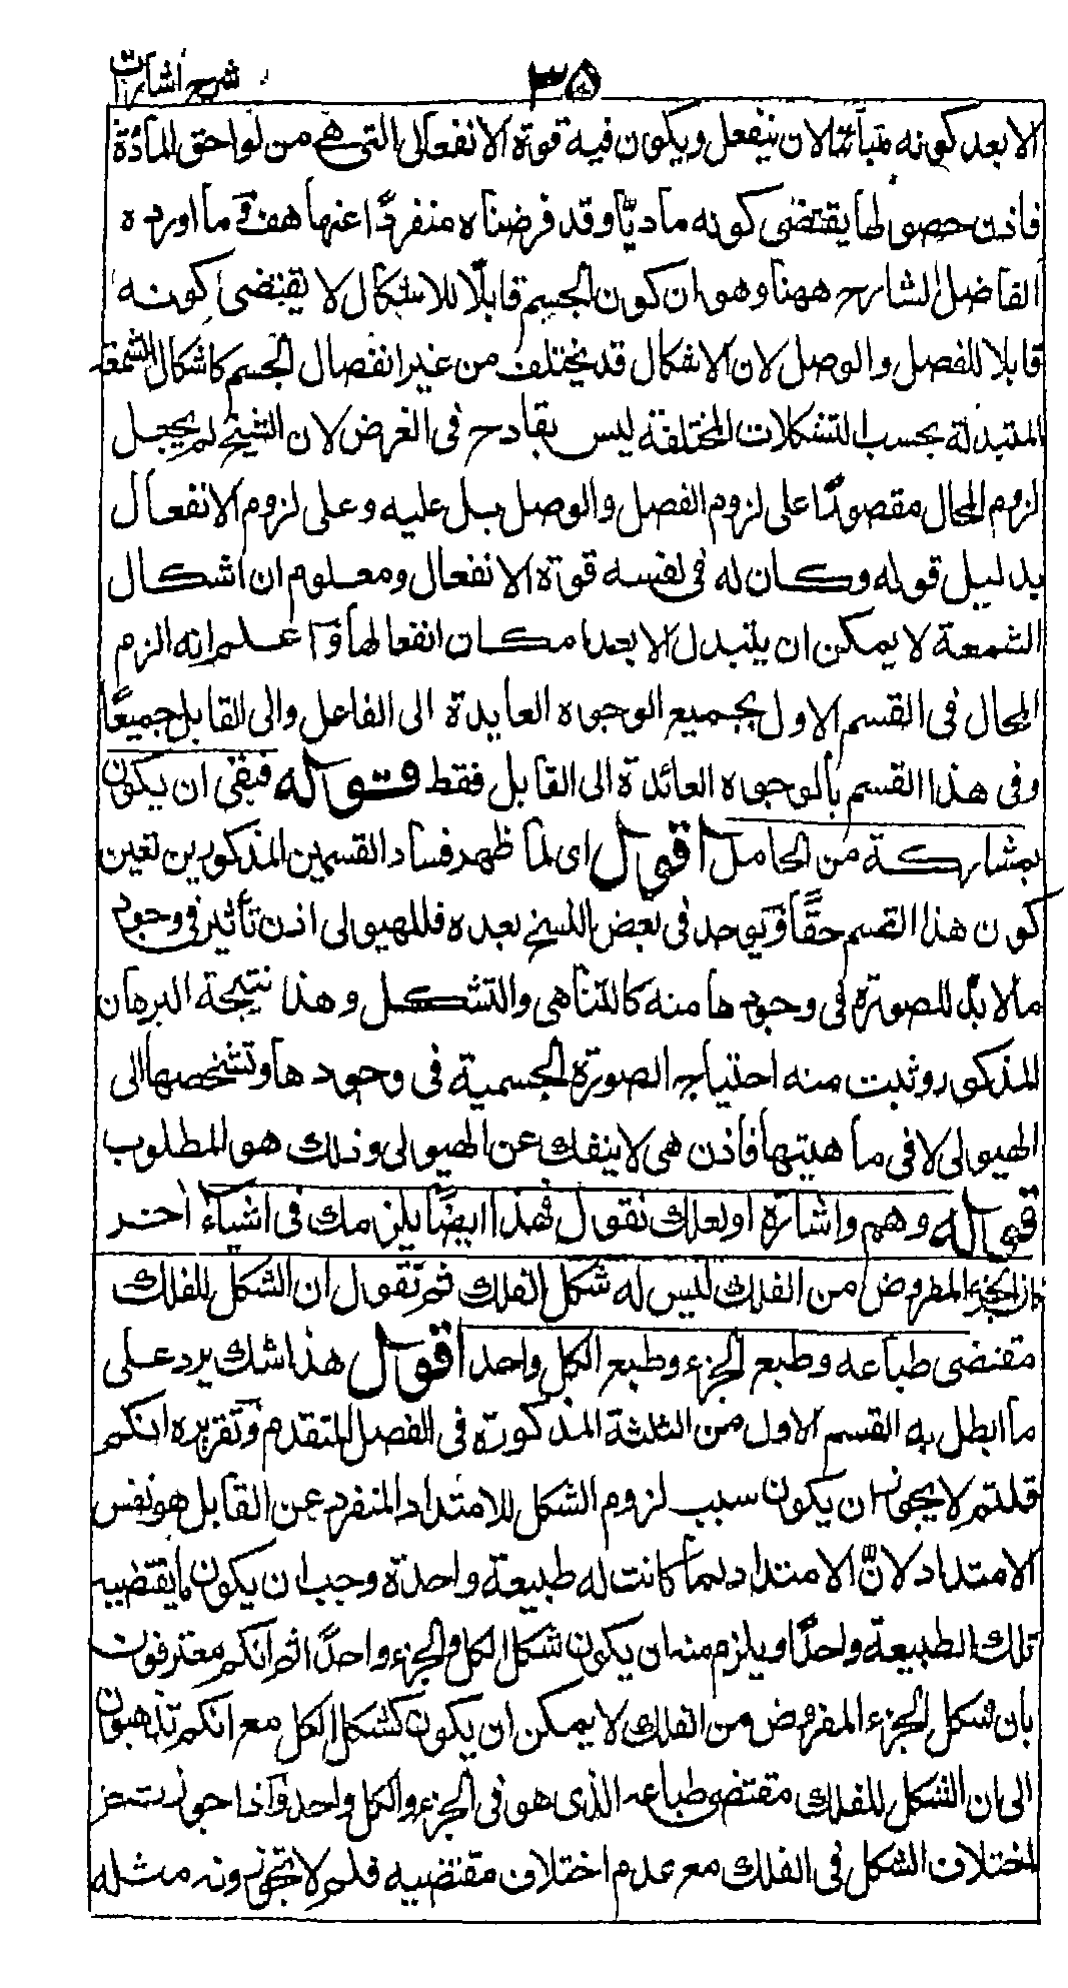 شرح اشارات
٣٥
الا بعد كونه متأتيا لان ينفعل ويكون فيه قوة الانفعال التى هى من لواحق المادة
فاذن حصولها يقتضى كونه ماديا وقد فرضناه منفردًا عنها هف وما اورده
الفاضل الشارح ههنا وهو ان كون الجسم قابلًا للاشكال لا يقتضى كونه
قابلا للفصل والوصل لان الاشكال قد يختلف من غير انفصال الجسم كاشكال الشمعة
المتبدلة بحسب التشكلات المختلفة ليس بقادح فى الغرض لان الشيخ لم يجعل
لزوم المحال مقصورًا على لزوم الفصل والوصل بل عليه وعلى لزوم الانفعال
بدليل قوله وكان له فى نفسه قوة الانفعال ومعلوم ان اشكال
الشمعة لا يمكن ان يتبدل الا بعد امكان انفعالها واعلم انه الزم
المحال فى القسم الاول بجميع الوجوه العايدة الى الفاعل والى القابل جميعًا
وفى هذا القسم بالوجوه العائدة الى القابل فقط قوله فبقى ان يكون
بمشاركة من الحامل اقول اى لما ظهر فساد القسمين المذكورين تعين
كون هذا القسم حقًّا ويوجد فى بعض النسخ بعده فللهيولى اذن تأثير فى وجود
ما لا بدّ للصورة فى وجودها منه كالتناهى والتشكل وهذا نتيجة البرهان
المذكور وثبت منه احتياج الصورة الجسمية فى وجودها وتشخصها الى
الهيولى لا فى ماهيتها فاذن هى لا ينفك عن الهيولى وذلك هو المطلوب
قوله وهم واشارة او لعلك تقول فهذا ايضًا يلزمك فى اشياء اخر
فان الجزء المفروض من الفلك ليس له شكل الفلك ثم تقول ان الشكل للفلك
مقتضى طباعه وطبع الجزء وطبع الكل واحد اقول هذا شك يرد على
ما ابطل به القسم الاول من الثلثة المذكورة فى الفصل المتقدم وتقريره انكم
قلتم لا يجوز ان يكون سبب لزوم الشكل للامتداد المنفرد عن القابل هو نفس
الامتداد لانّ الامتداد لما كانت له طبيعة واحدة وجب ان يكون ما يقتضيه
تلك الطبيعة واحدًا ويلزم منه ان يكون شكل الكل والجزء واحدًا ثم انكم معترفون
بان شكل الجزء المفروض من الفلك لا يمكن ان يكون كشكل الكل مع انكم تذهبون
الى ان الشكل للفلك مقتضى طباعه الذى هو فى الجزء والكل واحد واذا جوزتم
اختلاف الشكل فى الفلك مع عدم اختلاف مقتضيه فلم لا تجوزونه مثله